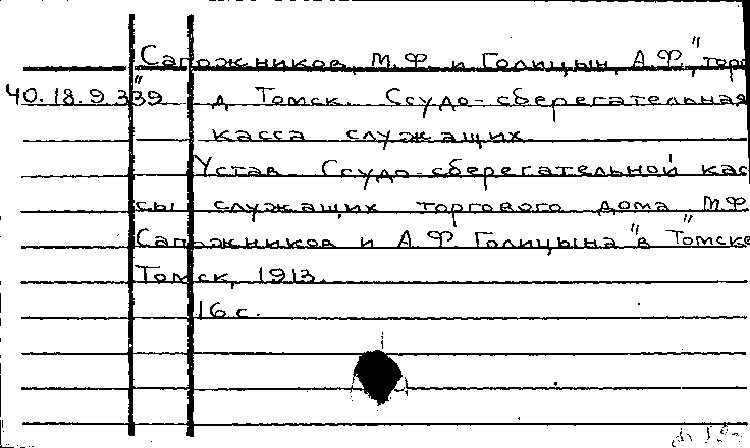 Сапожников, М.Ф. и Голицын, А.Ф.", торг
40.18.9.339 д Томск. Ссудо-сберегательная
касса служащих
Устав Ссудо-сберегательной кас
сы служащих торгового дома "М.Ф.
Сапожников и А.Ф. Голицына" в Томске
Томск, 1913.
16 с.